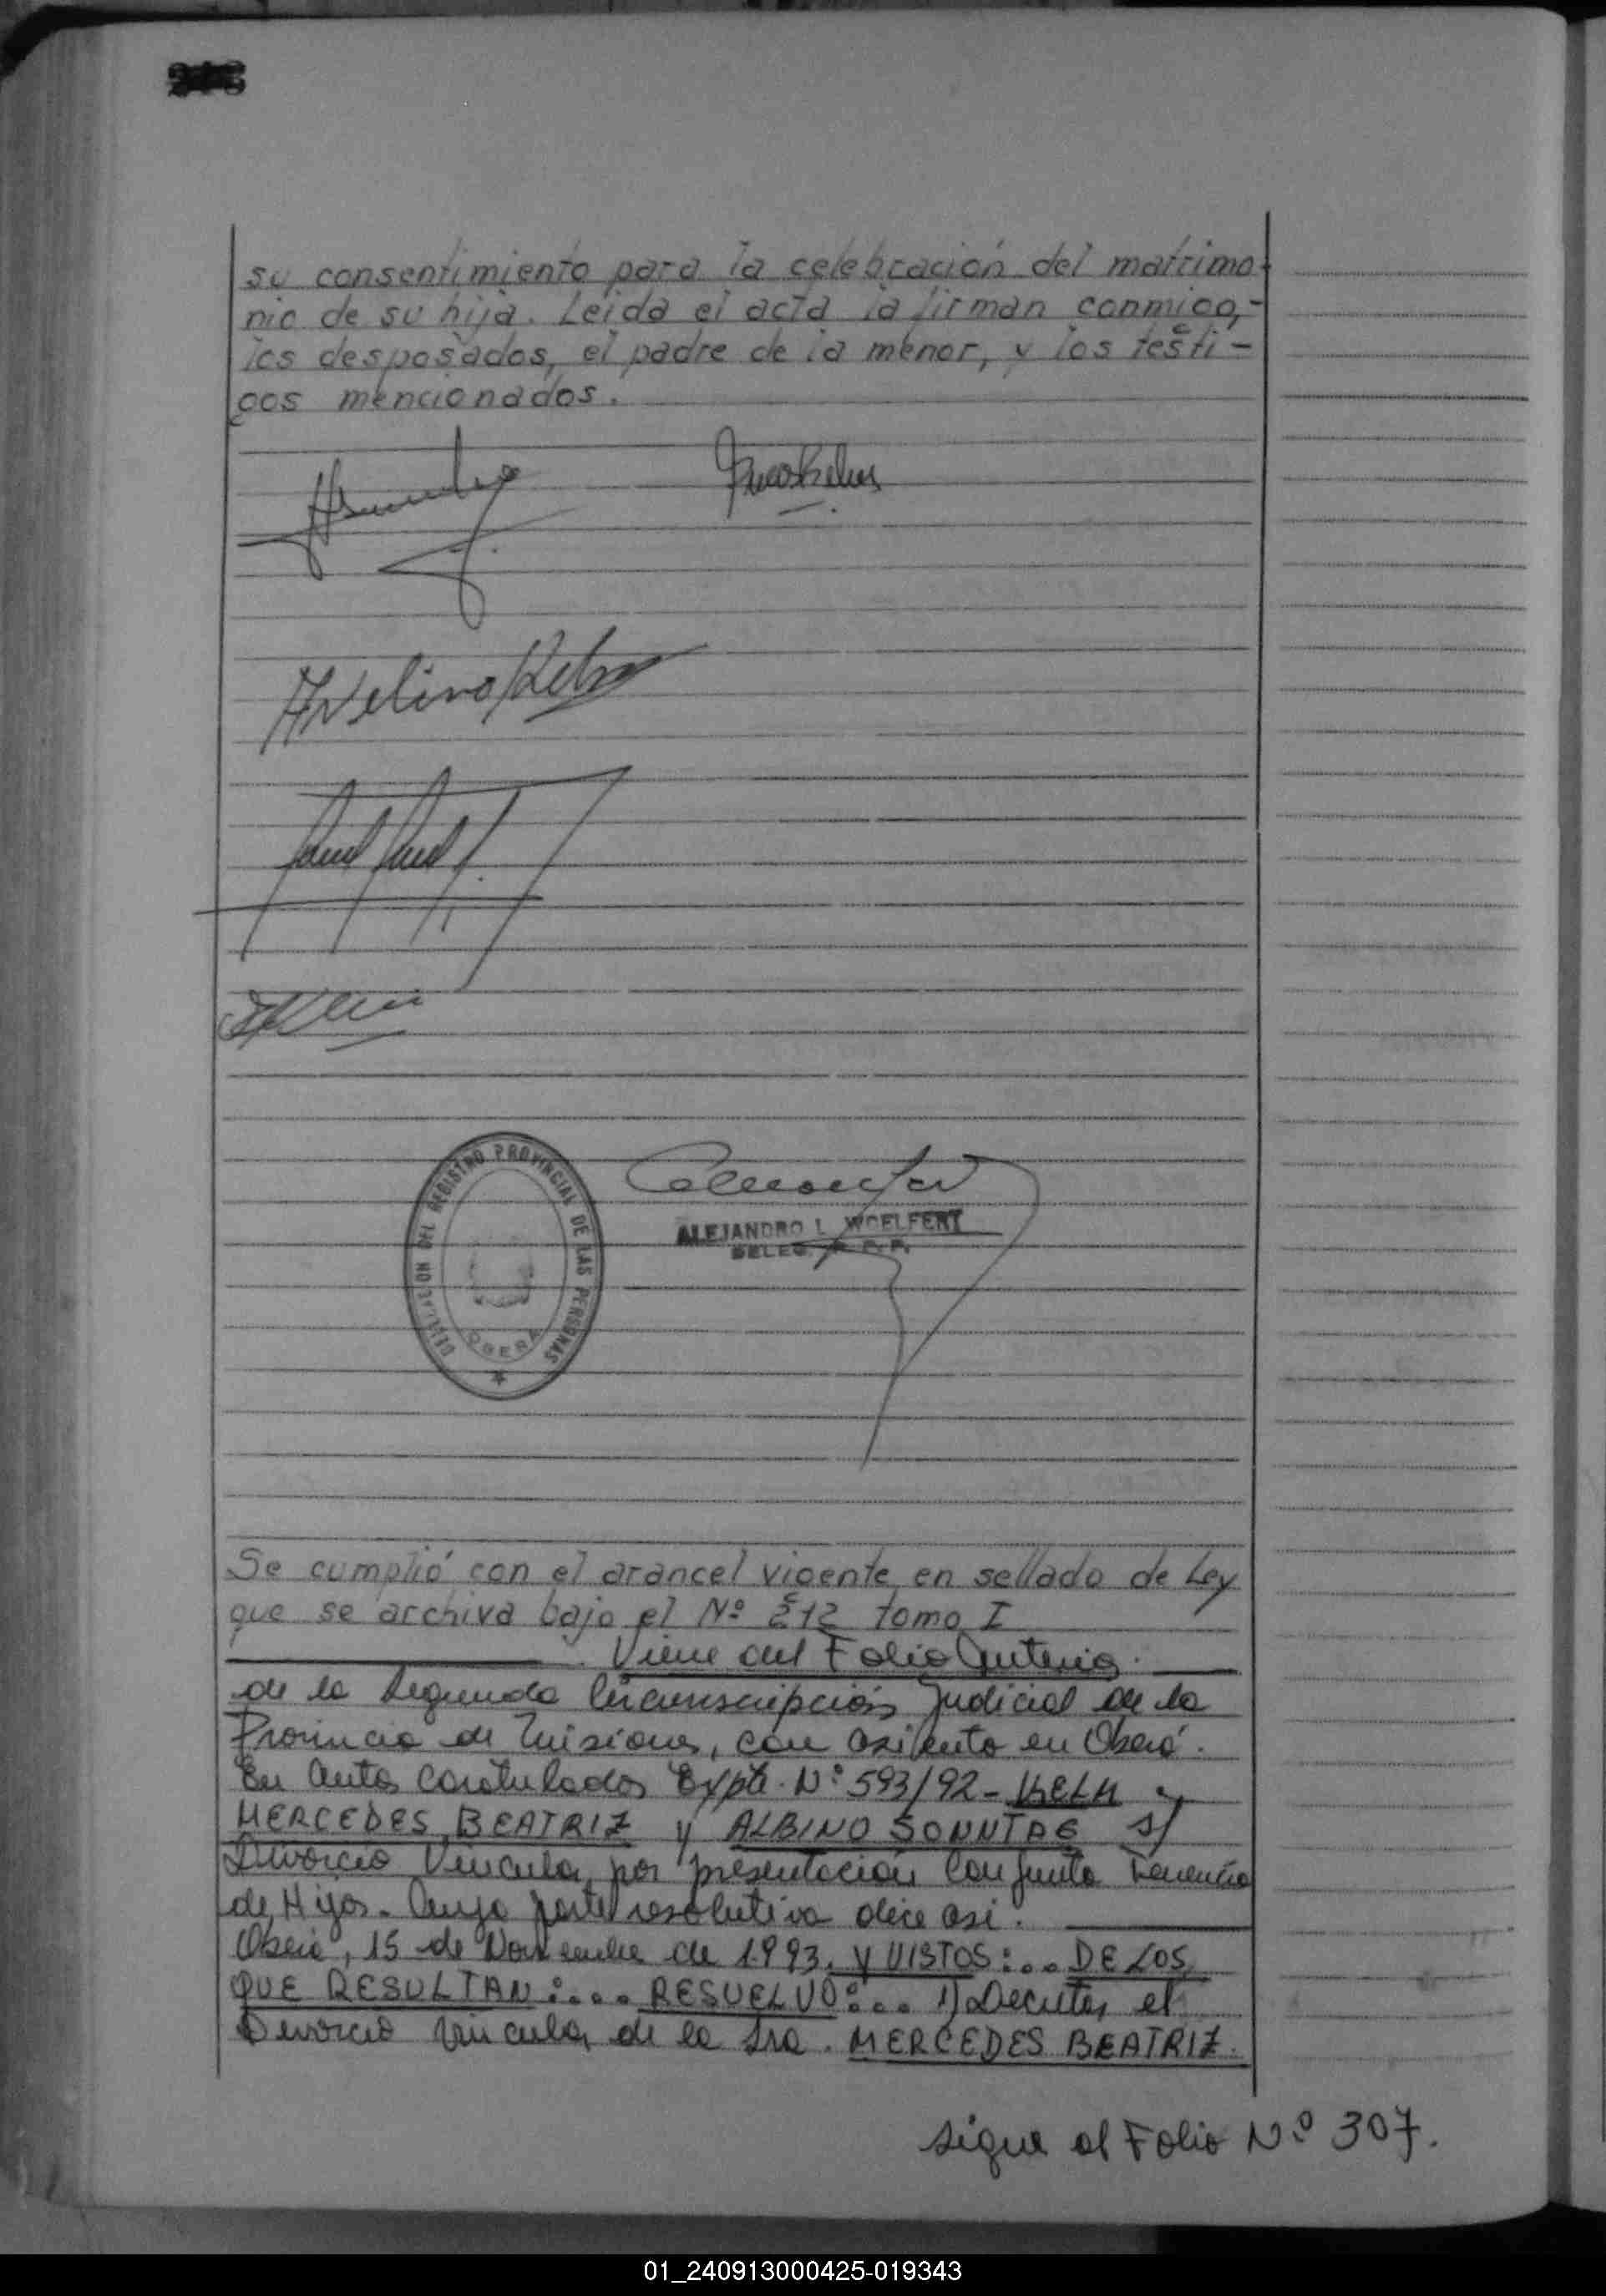 su consentimiento para la celebración del matrimo-
nio de su hija. Leida el acta la firman conmigo,-
los desposados, el padre de la menor, y los testi-
gos mencionados.
Avelino
DELEGACION DEL REGISTRO PROVINCIAL DE LAS PERSONAS
OBERA
ALEJANDRO L. WOELFERT
DELEG. R. P. P.
Se cumplió con el arancel vigente en sellado de Ley
que se archiva bajo el Nº 212 tomo I
Viene del Folio Anterior.
de la Segunda Circunscripción Judicial de la
Provincia de Misiones, con asiento en Oberá.
En autos caratulados Expte. Nº 593/92 - KELM
MERCEDES BEATRIZ y ALBINO SONNTAG s/
Divorcio Vincular por presentación Conjunta Tenencia
de Hijos. Cuya parte resolutiva dice asi.
Oberá, 15 de Noviembre de 1.993. Y VISTOS:... DE LOS
QUE RESULTAN:.... RESUELVO:... 1) Decretar el
Divorcio Vincular de la Sra. MERCEDES BEATRIZ.
Sigue al Folio Nº 307.
01_240913000425-019343